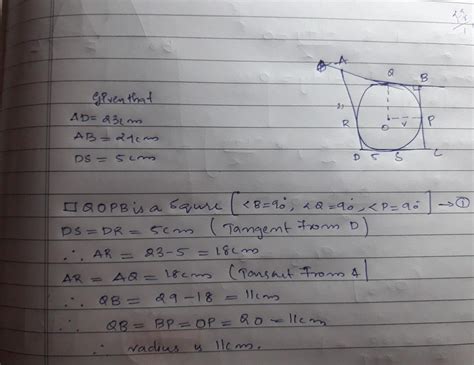 A
Q
B
R
O
r
P
D 5 S C
Given that
AD = 23cm
AB = 29cm
DS = 5cm
□ QOPB is a Squre [<B=90°, <Q=90°, <P=90°] → ①
DS = DR = 5cm (Tangent from D)
∴ AR = 23-5 = 18cm
AR = AQ = 18cm (Tangent from A)
∴ QB = 29-18 = 11cm
∴ QB = BP = OP = QO = 11cm
∴ radius is 11cm.